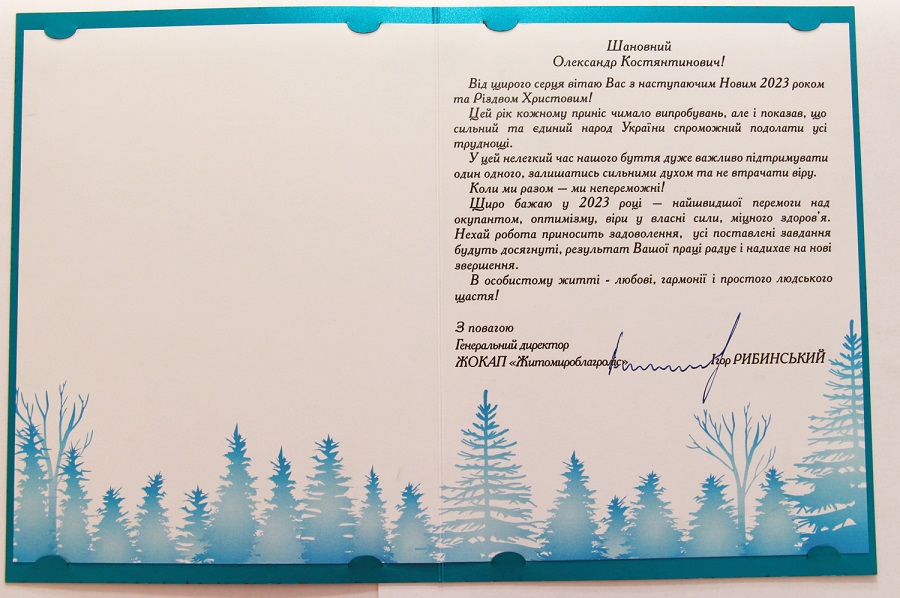 Шановний
Олександр Костянтинович!
Від щирого серця вітаю Вас з наступаючим Новим 2023 роком
та Різдвом Христовим!
Цей рік кожному приніс чимало випробувань, але і показав, що
сильний та єдиний народ України спроможний подолати усі
труднощі.
У цей нелегкий час нашого буття дуже важливо підтримувати
один одного, залишатись сильними духом та не втрачати віру.
Коли ми разом — ми непереможні!
Щиро бажаю у 2023 році — найшвидшої перемоги над
окупантом, оптимізму, віри у власні сили, міцного здоров'я.
Нехай робота приносить задоволення, усі поставлені завдання
будуть досягнуті, результат Вашої праці радує і надихає на нові
звершення.
В особистому житті - любові, гармонії і простого людського
щастя!
З повагою
Генеральний директор
ЖОКАП «Житомироблагроліс» Ігор РИБИНСЬКИЙ